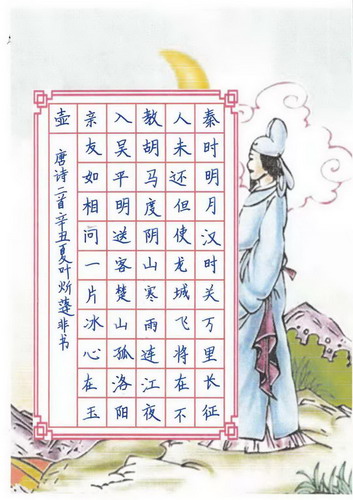 秦时明月汉时关万里长征
人未还但使龙城飞将在不
教胡马度阴山寒雨连江夜
入吴平明送客楚山孤洛阳
亲友如相问一片冰心在玉
壶
唐诗二首辛丑夏叶炘非书